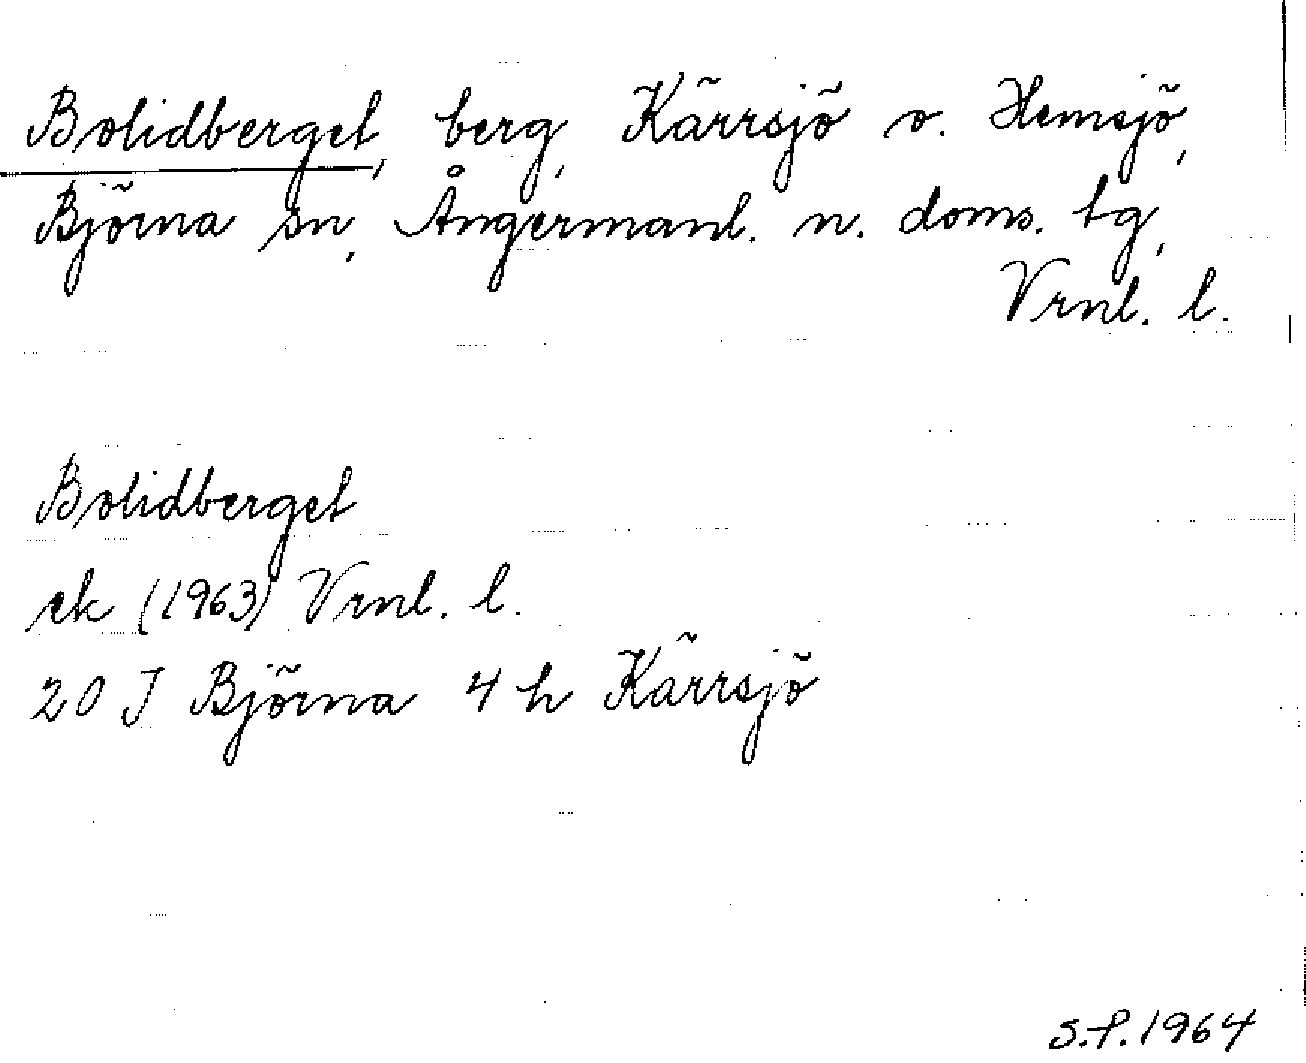 Bolidberget, berg, Kärrsjö o. Hemsjö,
Björna sn, Ångermanl. n. doms. tg,
Vrnl. l.
Bolidberget
ek (1963) Vrnl. l.
20 J Björna 4 h Kärrsjö
S.P. 1964